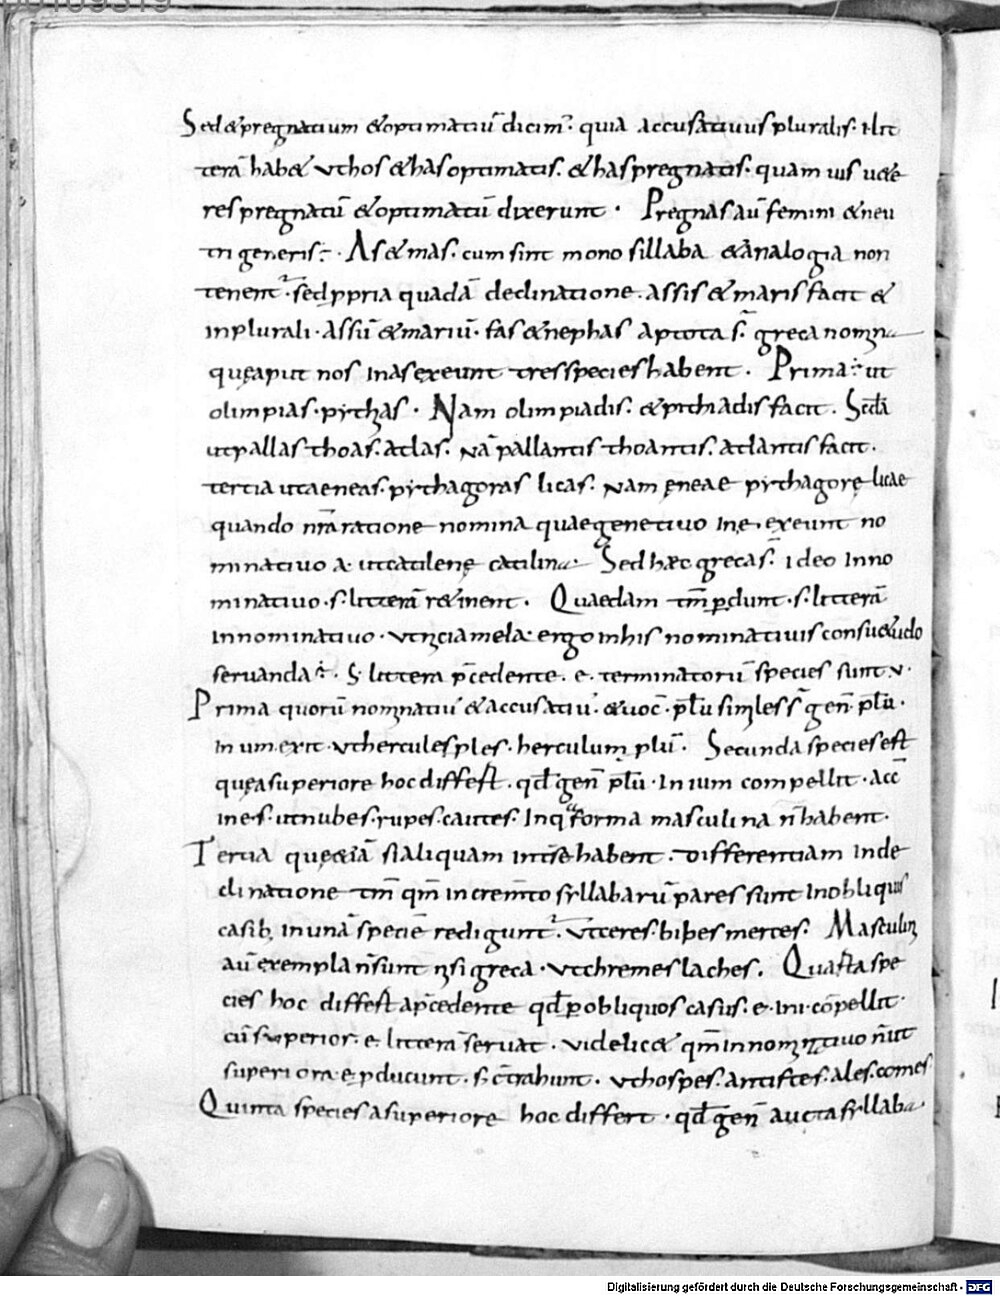 00109319
Sed & pregnatium & optimatiū dicimꝰ quia accusatiuus pluralis · i · lit
terā hab& ut hos & has optimatis · & has pregnatis · quam uis u&e
res pregnatū & optimatū dixerunt · Pregnas aū femini & neu
tri generis · As & mas · cum sint mono sillaba & analogia non
tenent · sed ꝓpria quadā declinatione · assis & maris facit &
in plurali · assiū & mariū · fas & nephas aptota s̄ greca nomina
quę aput nos in as exeunt tres species habent · Prima · ut
olimpias · pythas · Nam olimpiadis · & pithiadis facit · Scďa
ut pallas thoas · atlas · Nā pallantis thoantis · atlantis facit ·
tertia ut aeneas · pythagoras licas · Nam ęneae pythagorę licae
quando nr̄a ratione nomina quae genetiuo in ę · exeunt no
minatiuo a · ut catilenę catilina · Sed hæc greca s̄ · ideo in no
minatiuo · s · litterā r&inent · Quaedam tm̄ ꝑdunt · s · litterā
in nominatiuo · ergo in his nominatiuis consu&udo
seruanda · S · littera p̄cedente · e · terminatorū species sunt · v ·
Prima quorū nominatiuꝰ & accusatiuꝰ · & uoc̄ · plū similes s̄ gen̄ · plū ·
in um exit · ut hercules ples · herculum plū · Secunda species est
quę a superiore hoc differt · qđ gen̄ plū · in ium compellit · acc̄
in es · ut nubes · rupes · cautes · In qua forma masculina n̄ habent ·
Tertia quę &iā si aliquam int̄ se habent · differentiam in de
clinatione tm̄ qm̄ incremto syllabarū pares sunt in obliquis
casib; in unā speciē rediguntꝰ · Ut ceres · bipes merces · Masculini
aū exempla n̄ sunt nisi greca · ut chremes laches · Quarta spe
cies hoc differt a p̄cedente qđ ꝑ obliquos casus · e · in i · cōpellit ·
cū superior · e · litterā seruat · uidelic& qm̄ in nominatiuo n̄ ut
superiora ę ꝓducunt · s; ctrahunt · ut hospes · antistes · ales · comes
Quinta species a superiore hoc differt · qđ gen̄ aucta syllaba
Digitalisierung gefördert durch die Deutsche Forschungsgemeinschaft - DFG